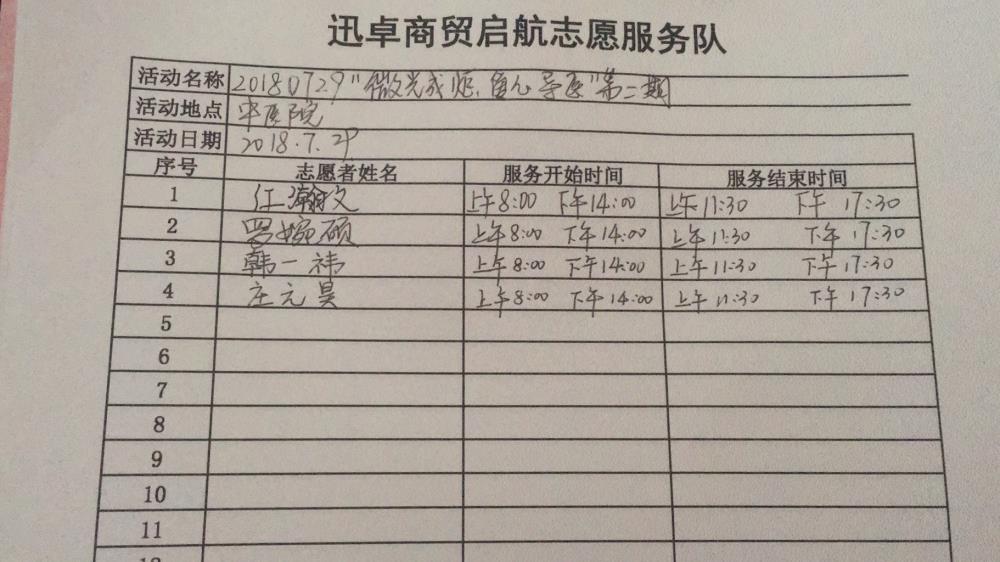 迅卓商贸启航志愿服务队
活动名称 20180729"微光成炬,童心导医"第二期
活动地点 中医院
活动日期 2018.7.29
序号 志愿者姓名 服务开始时间 服务结束时间
1 任瀚文 上午8:00 下午14:00 上午11:30 下午17:30
2 罗婉硕 上午8:00 下午14:00 上午11:30 下午17:30
3 韩一祎 上午8:00 下午14:00 上午11:30 下午17:30
4 庄元昊 上午8:00 下午14:00 上午11:30 下午17:30
5
6
7
8
9
10
11